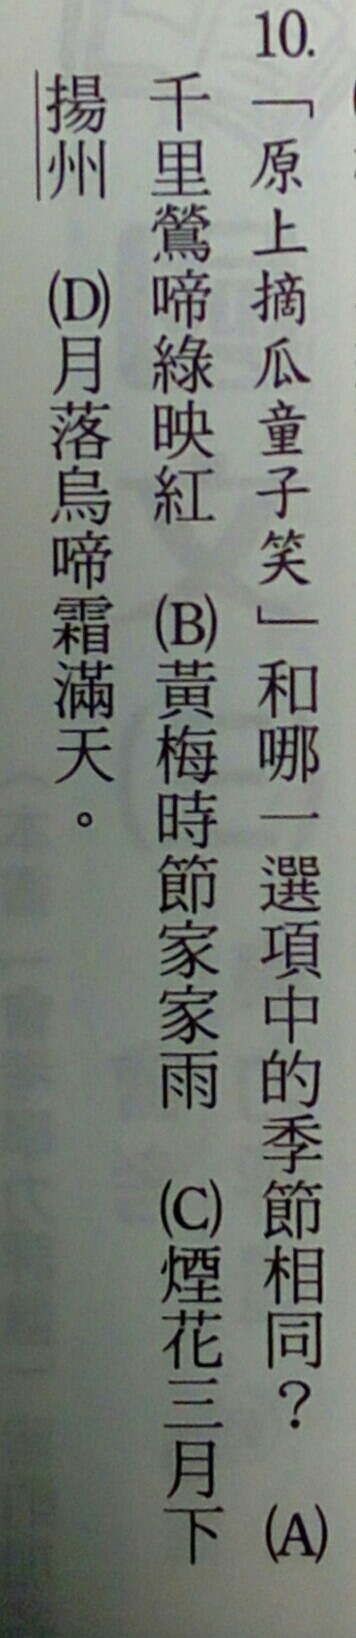 10.「原上摘瓜童子笑」和哪一選項中的季節相同？　(A)
千里鶯啼綠映紅　(B)黃梅時節家家雨　(C)煙花三月下
揚州　(D)月落烏啼霜滿天。